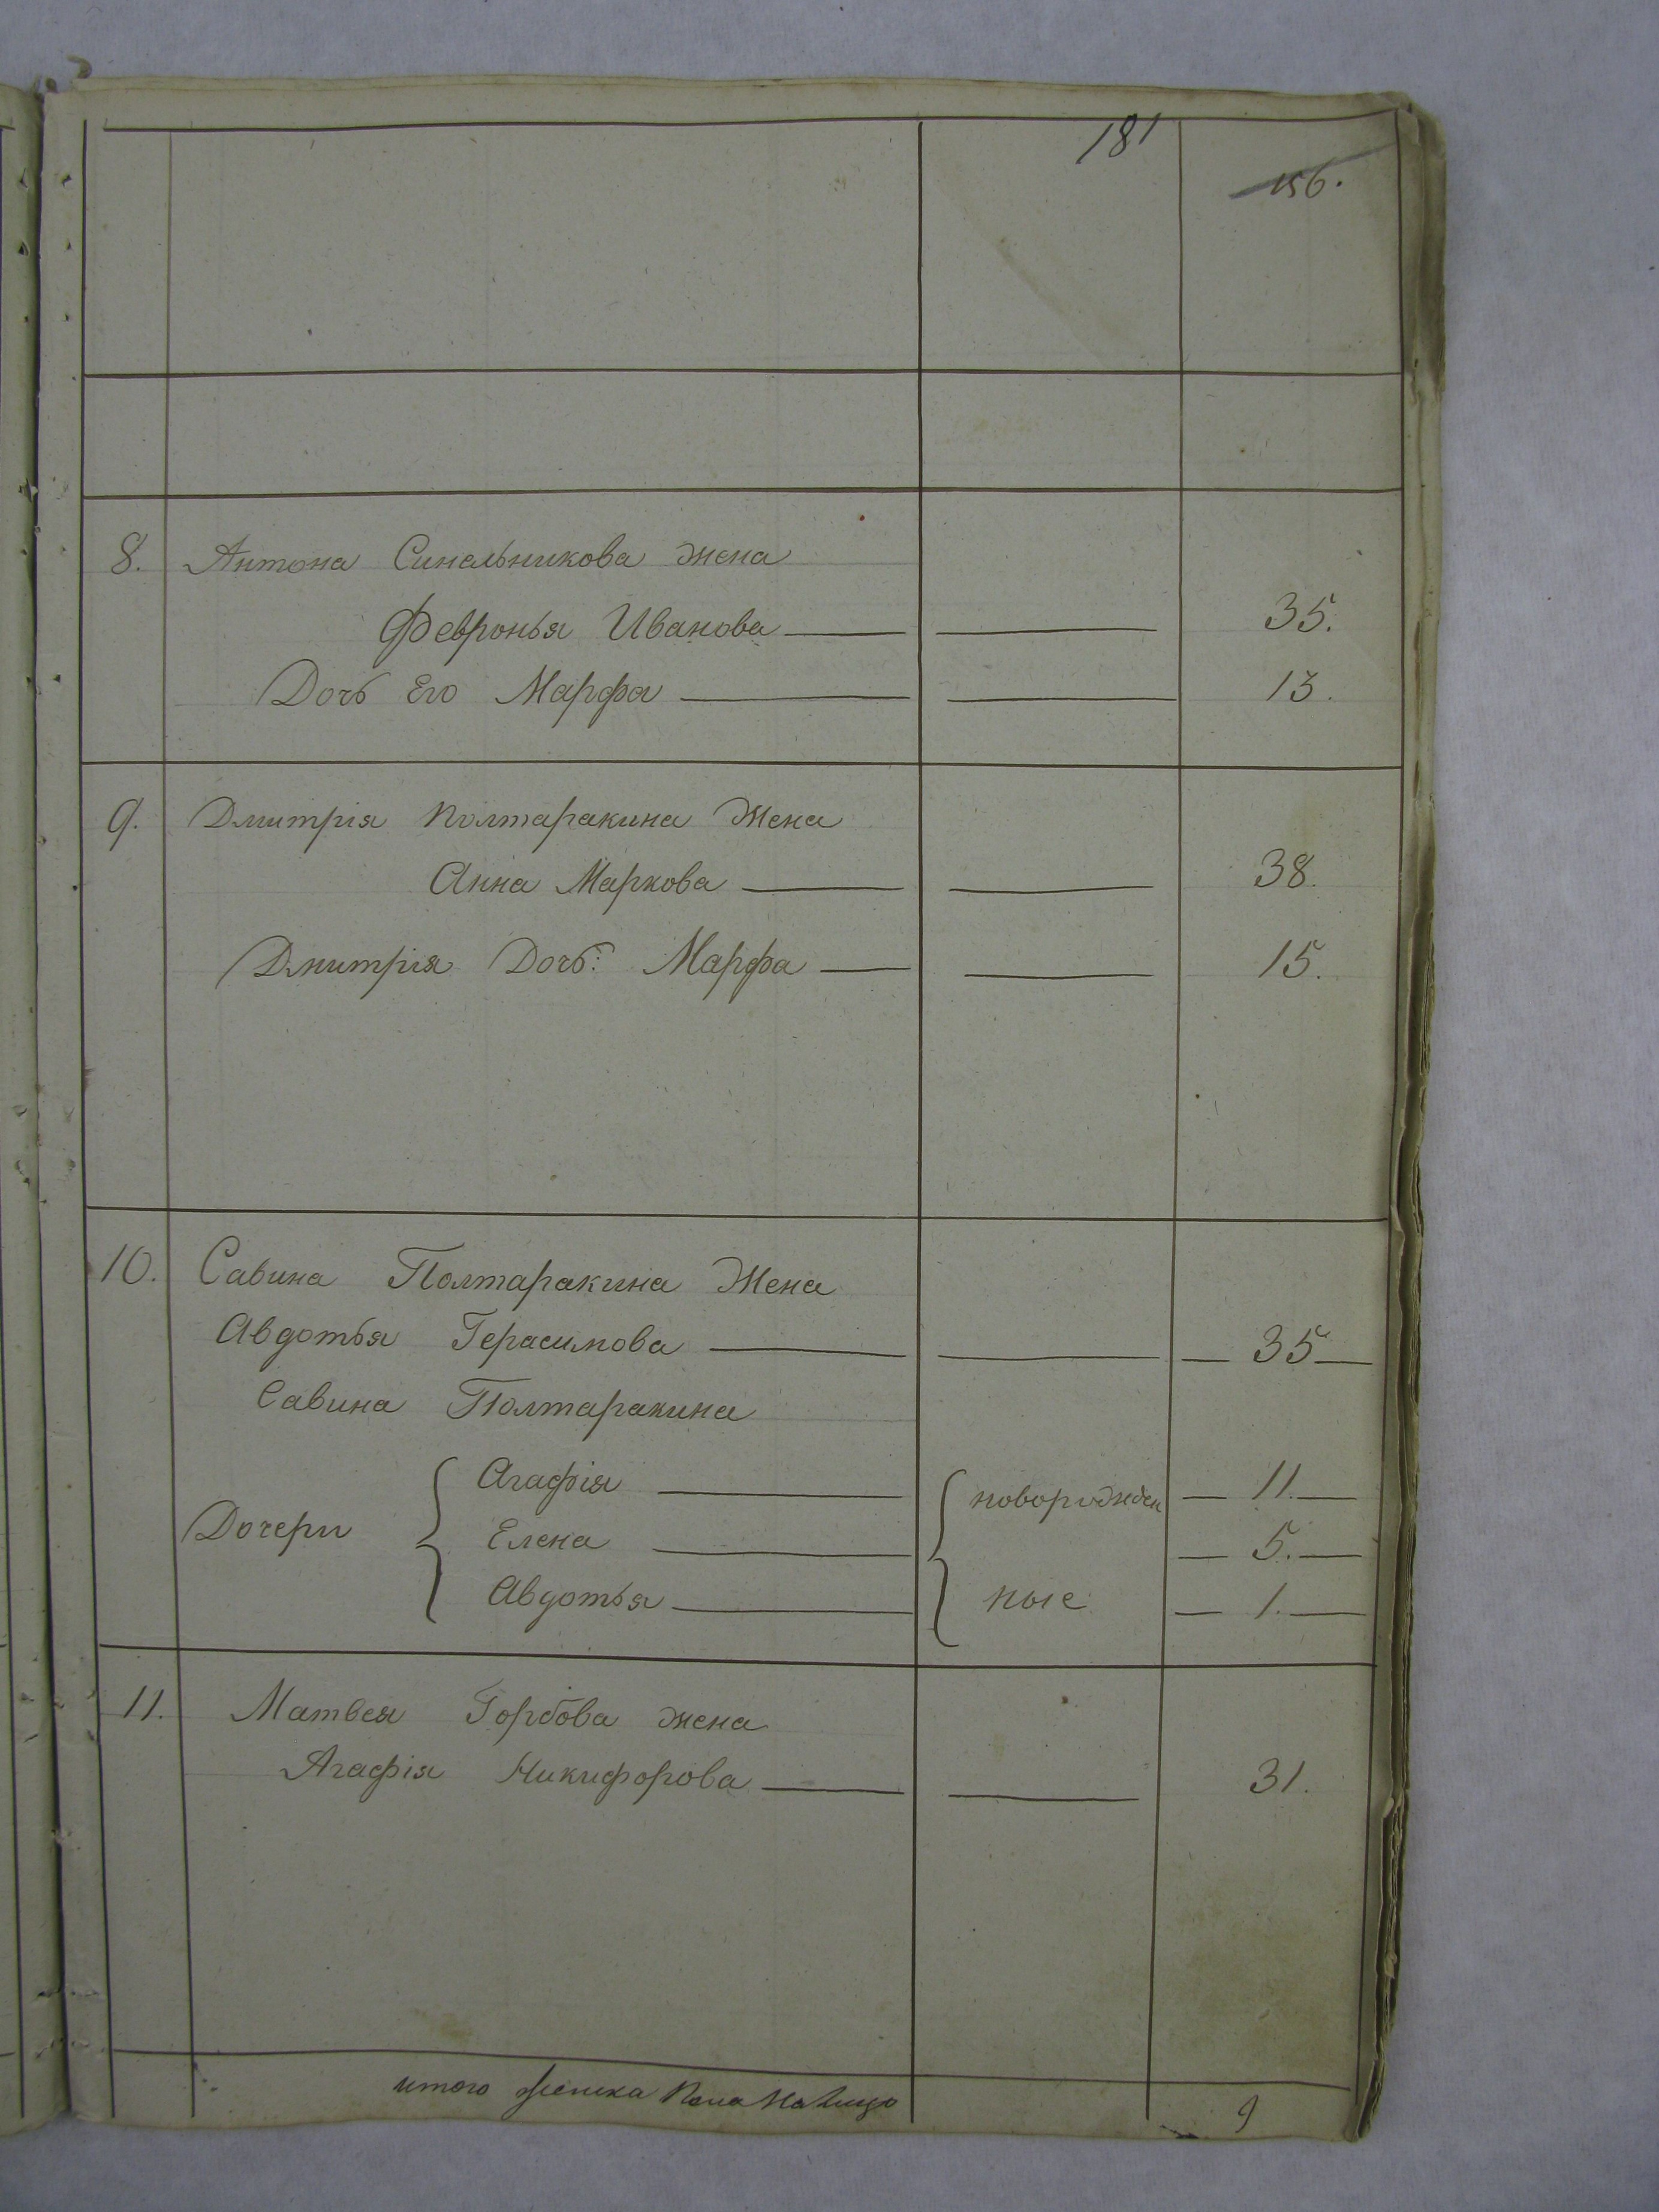 181
156.
8. Антона Синельникова жена
Февронья Иванова 35.
Дочь Его Марфа 13.
9. Дмитрія Полтаракина Жена
Анна Маркова 38.
Дмитрія Дочь: Марфа 15.
10. Савина Полтаракина Жена
Авдотья Герасимова 35
Савина Полтаракина
Агафія новорожден 11.
Дочери Елена 5.
Авдотья ные 1.
11. Матвея Горбова жена
Агафія Никифорова 31.
итого женска Пола На лицо 9